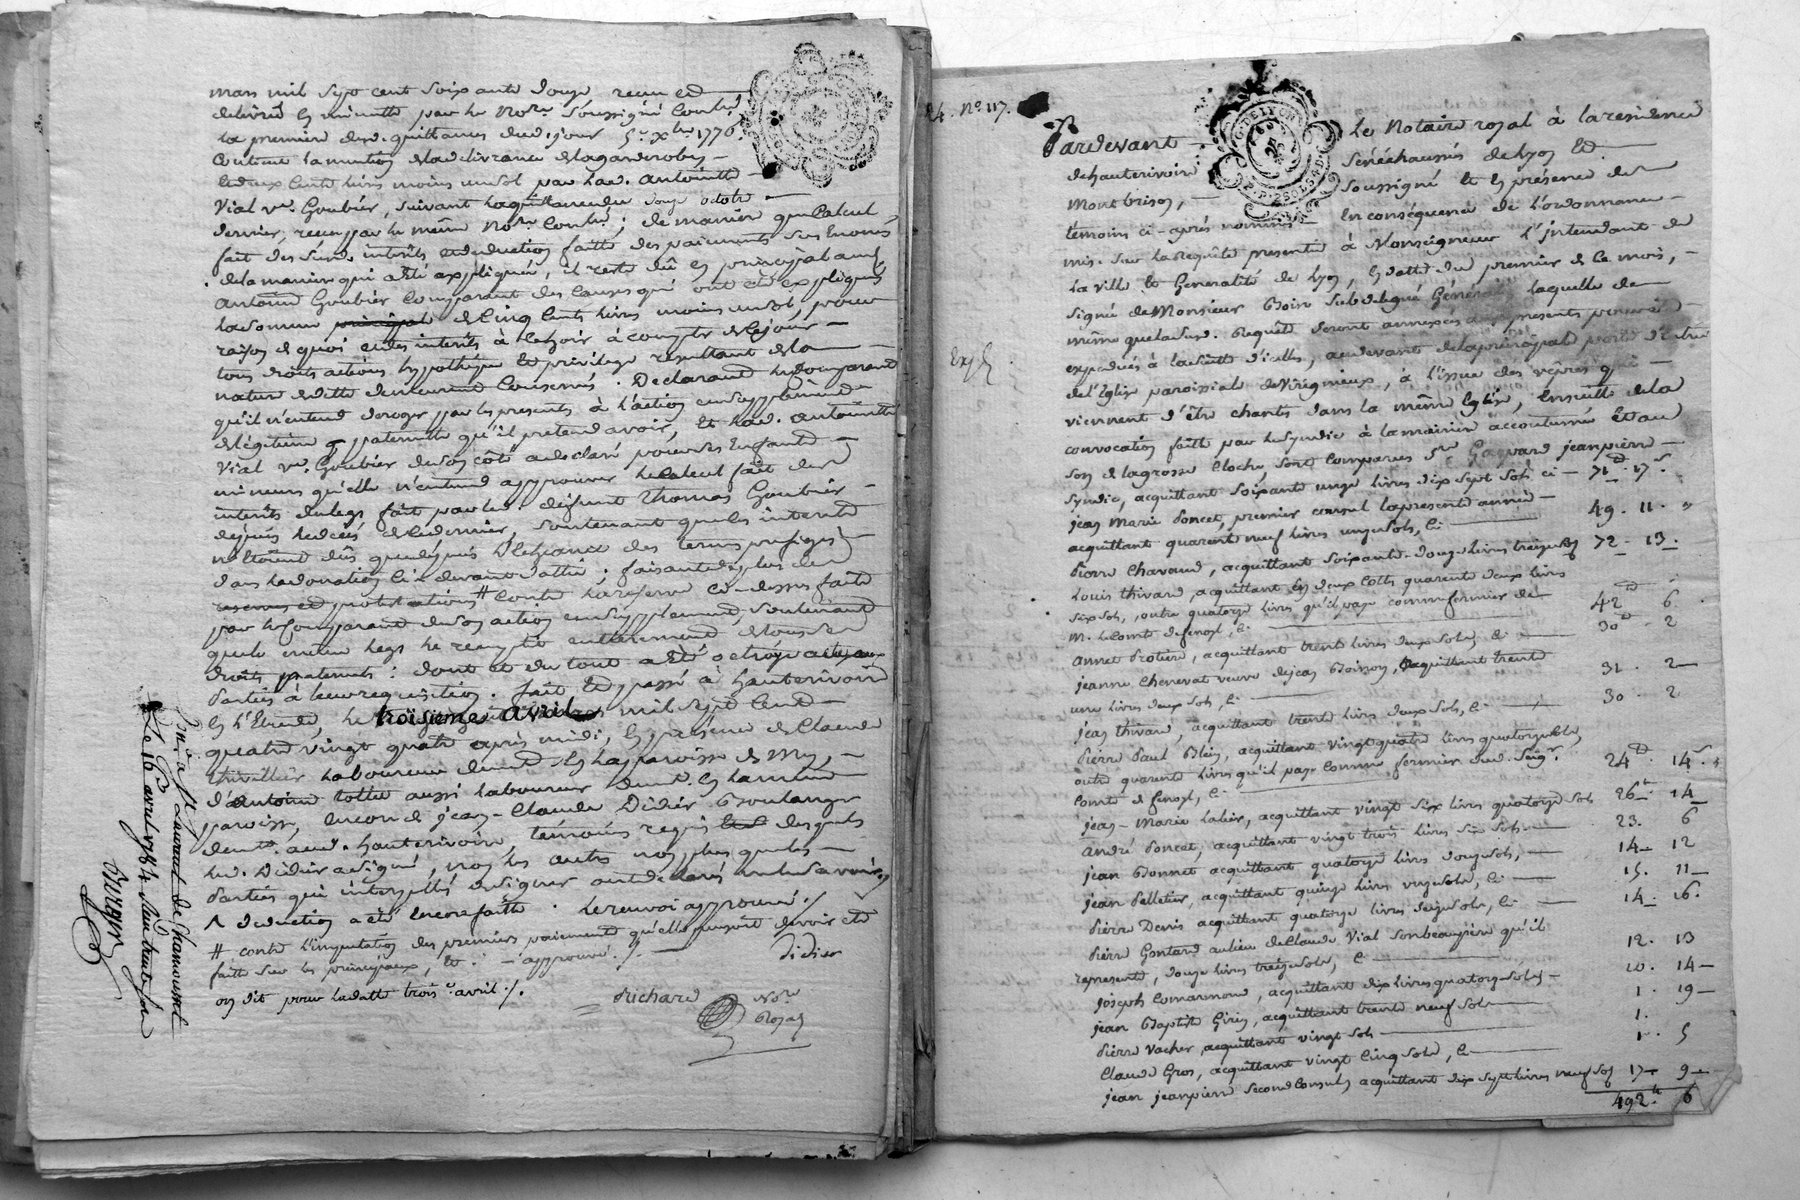 mars mil sept cent soixante douze, recu et
delivré en minutte par le No.re soussigné
la premiere des. quittances dud. jour 5.e Xbre 1776
de la delivrance de la garderobe,
deux cents livres moins un sol par lad. antoinette
Vial ve. Goubier, suivant la quittance du douze octobre
dernier, recu par le même No.re ; de maniere que calcul
fait des interets et deduction faitte des paiements
de la maniere qui a été expliquée, il reste dû en principal aud.
antoine Goubier comparant des causes qui ont été expliqués
la somme de cinq cents livres moins un sol, pour
raison de quoi et des interets à echoir à compter de ce jour
tous droits actions hypotheque et privilege resultant de la
nature de dette demeurent conservés. Declarant le comparant
qu'il n'entend deroger par les presentes à l'action en supplement
de légitime paternelle qu'il pretend avoir, et lad. antoinette
Vial ve. Goubier de son côté a declaré pour ses enfants
mineurs qu'elle n'entend approuver le calcul fait des
interets du legs fait par led. deffunt Thomas Goubier
depuis le decés de ce dernier, soutenant que les interets
ne etoient dûs que depuis l'echeance des termes prefigés
dans la donation ci devant dattée ; faisant de plus des
reserves et protestations # contre la reserve ci-dessus faitte
par le comparant de son action en supplement, soutenant
que le legs le remplit entierement de tous ses
droits paternels : dont et du tout a été octroyé acte aux
parties à leur requisition. fait et passé à hauterivoire
en l'Etude, le troisieme avril mil sept cent
quatre vingt quatre après midi, en presence de Claude
laboureur demt. en la paroisse de
d'antoine aussi laboureur demt. en la même
paroisse, encore de jean-Claude Didier Boulanger
demt. aud. hauterivoire, temoins requis desquels
led. Didier a signé, non les autres non plus que les
parties qui interpellés de signer ont declaré ne le savoir,
^ deduction a été encore faitte. le renvoi approuvé ./.
# contre l'imputation des premiers paiements qu'elle pensoit devoir etre
faitte sur les principaux, &c. approuvé ./.
Didier
on dit pour la datte trois.e avril ./.
Richard No.re
Royal
a St. Laurent de Chamousset
Le 16 avril 1784 Reçu trente sols
R4. No 117.
Pardevant Le Notaire royal à la residence
de hauterivoire Sénéchaussés de Lyon et
Montbrison, soussigné et en présence des
témoins ci-après nommés. En conséquence de l'ordonnance
mise sur la Requête presentée à Monseigneur L'Intendant de
la ville et Generalité de Lyon, en datte du premier de ce mois,
signée de Monsieur subdelegué Général laquelle de
même que lad. Requête seront annexées aux presentes pour être
expediées à la suitte d'icelles, au devant de la principale porte d'entrée
de l'Eglise paroissiale de Virigneux, à l'issue des vêpres qui
viennent d'être chantés dans la même Eglise, ensuitte de la
convocation faitte par le sindic à la maniere accoutumée et au
son de la grosse cloche, sont comparus sr. Gaspard jeanpierre
Expd.
syndic, acquittant soixante onze livres dix sept sols ci — 71 tt 17 s
jean Marie Poncet, premier consul la presente année
acquittant quarente neuf livres onze sols, Ci 49 . 11 . "
Pierre Chavand, acquittant soixante-douze livres treize sols 72 – 13 .
Louis thivard acquittant en deux cottes quarente deux livres
six sols, outre quatorze livres qu'il paye comme fermier de
M. le Comte de fenoyl, Ci 42 tt 6
annet Protiere, acquittant trente livres deux sols, Ci 30 tt 2
jeanne Chenevat veuve de jean Boisson, acquittant trente
une livres deux sols, Ci 31 . 2
jean thivard, acquittant trente livres deux sols, Ci 30 . 2
Pierre Paul Blein, acquittant vingt quatre livres quatorze sols,
outre quarente livres qu'il paye comme fermier dud. Seigr.
Comte de fenoyl, Ci 24 tt 14 s
jean-Marie acquittant vingt six livres quatorze sols 26 tt 14
andré Poncet, acquittant vingt trois livres six sols 23 . 6
jean Bonnet acquittant quatorze livres douze sols, 14 – 12
jean Pelletier, acquittant quinze livres onze sols, Ci 15 . 11
Pierre Denis acquittant quatorze livres seize sols, Ci 14 – 16 .
Pierre Gontard au lieu de Claude Vial son beaupere qu'il
represente, douze livres treize sols, Ci 12 . 13
joseph Comarmond, acquittant dix livres quatorze sols 10 . 14
jean Baptiste Girin, acquittant trente neuf sols 1 . 19
Pierre Vacher acquittant vingt sols 1 .
Claude Gros, acquittant vingt cinq sols, Ci 1 . 5
jean jeanpierre second Consul, acquittant dix sept livres neuf sols 17 – 9
492 tt 6